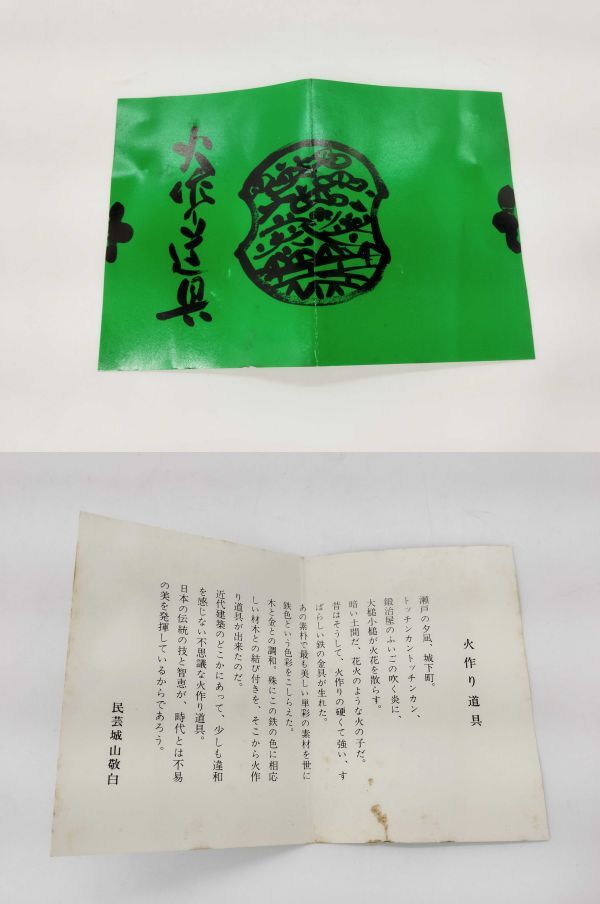 火作り道具
火作り道具
瀬戸の夕凪、城下町。
トッチンカントッチンカン、
鍛治屋のふいごの吹く炎に、
大槌小槌が火花を散らす。
暗い土間だ、花火のような火の子だ。
昔はそうして、火作りの硬くて強い、す
ばらしい鉄の金具が生れた。
あの素朴で最も美しい単彩の素材を世に
鉄色という色彩をこしらえた。
木と金との調和。殊にこの鉄の色に相応
しい材木との結び付きを、そこから火作
り道具が出来たのだ。
近代建築のどこかにあって、少しも違和
を感じない不思議な火作り道具。
日本の伝統の技と智恵が、時代とは不易
の美を発揮しているからであろう。
民芸城山敬白